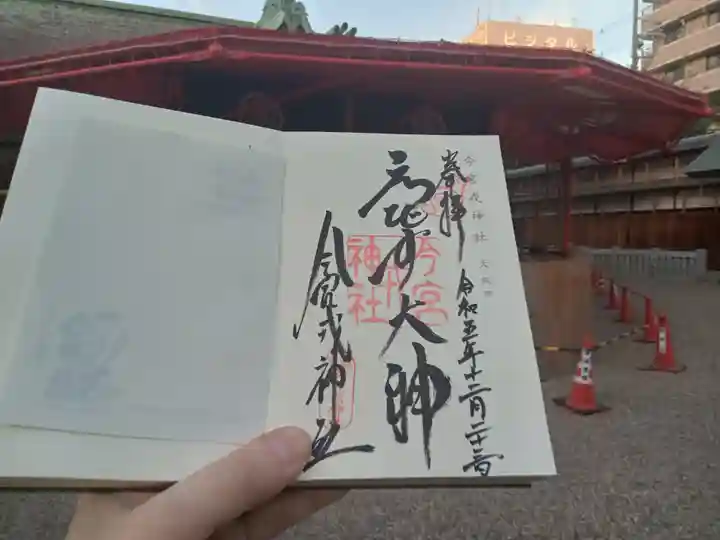 ビジタル
今宮戎神社 大阪市
奉拝
令和五年十二月二十三日
大神
今宮
戎
神社
今宮戎神社